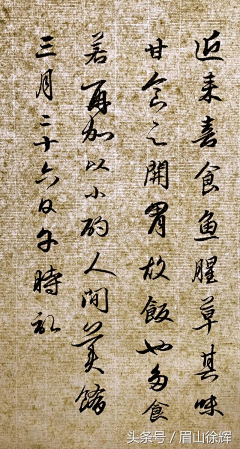 近来喜食鱼腥草其味
甘食之開胃故飯也多食
若再加以小酌人间美馐
三月二十六日午時記
头条号／眉山徐辉